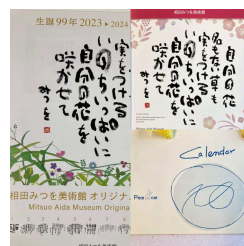 生誕99年 2023▸2024
実をつける
自分の花を
いのちいっぱいに
咲かせて
みつを
相田みつを美術館 オリジナ
Mitsuo Aida Museum Origina
相田みつを美術館
名もない草も
実をつける
いのちいっぱいに
自分の花を
咲かせて
みつを
Calendar